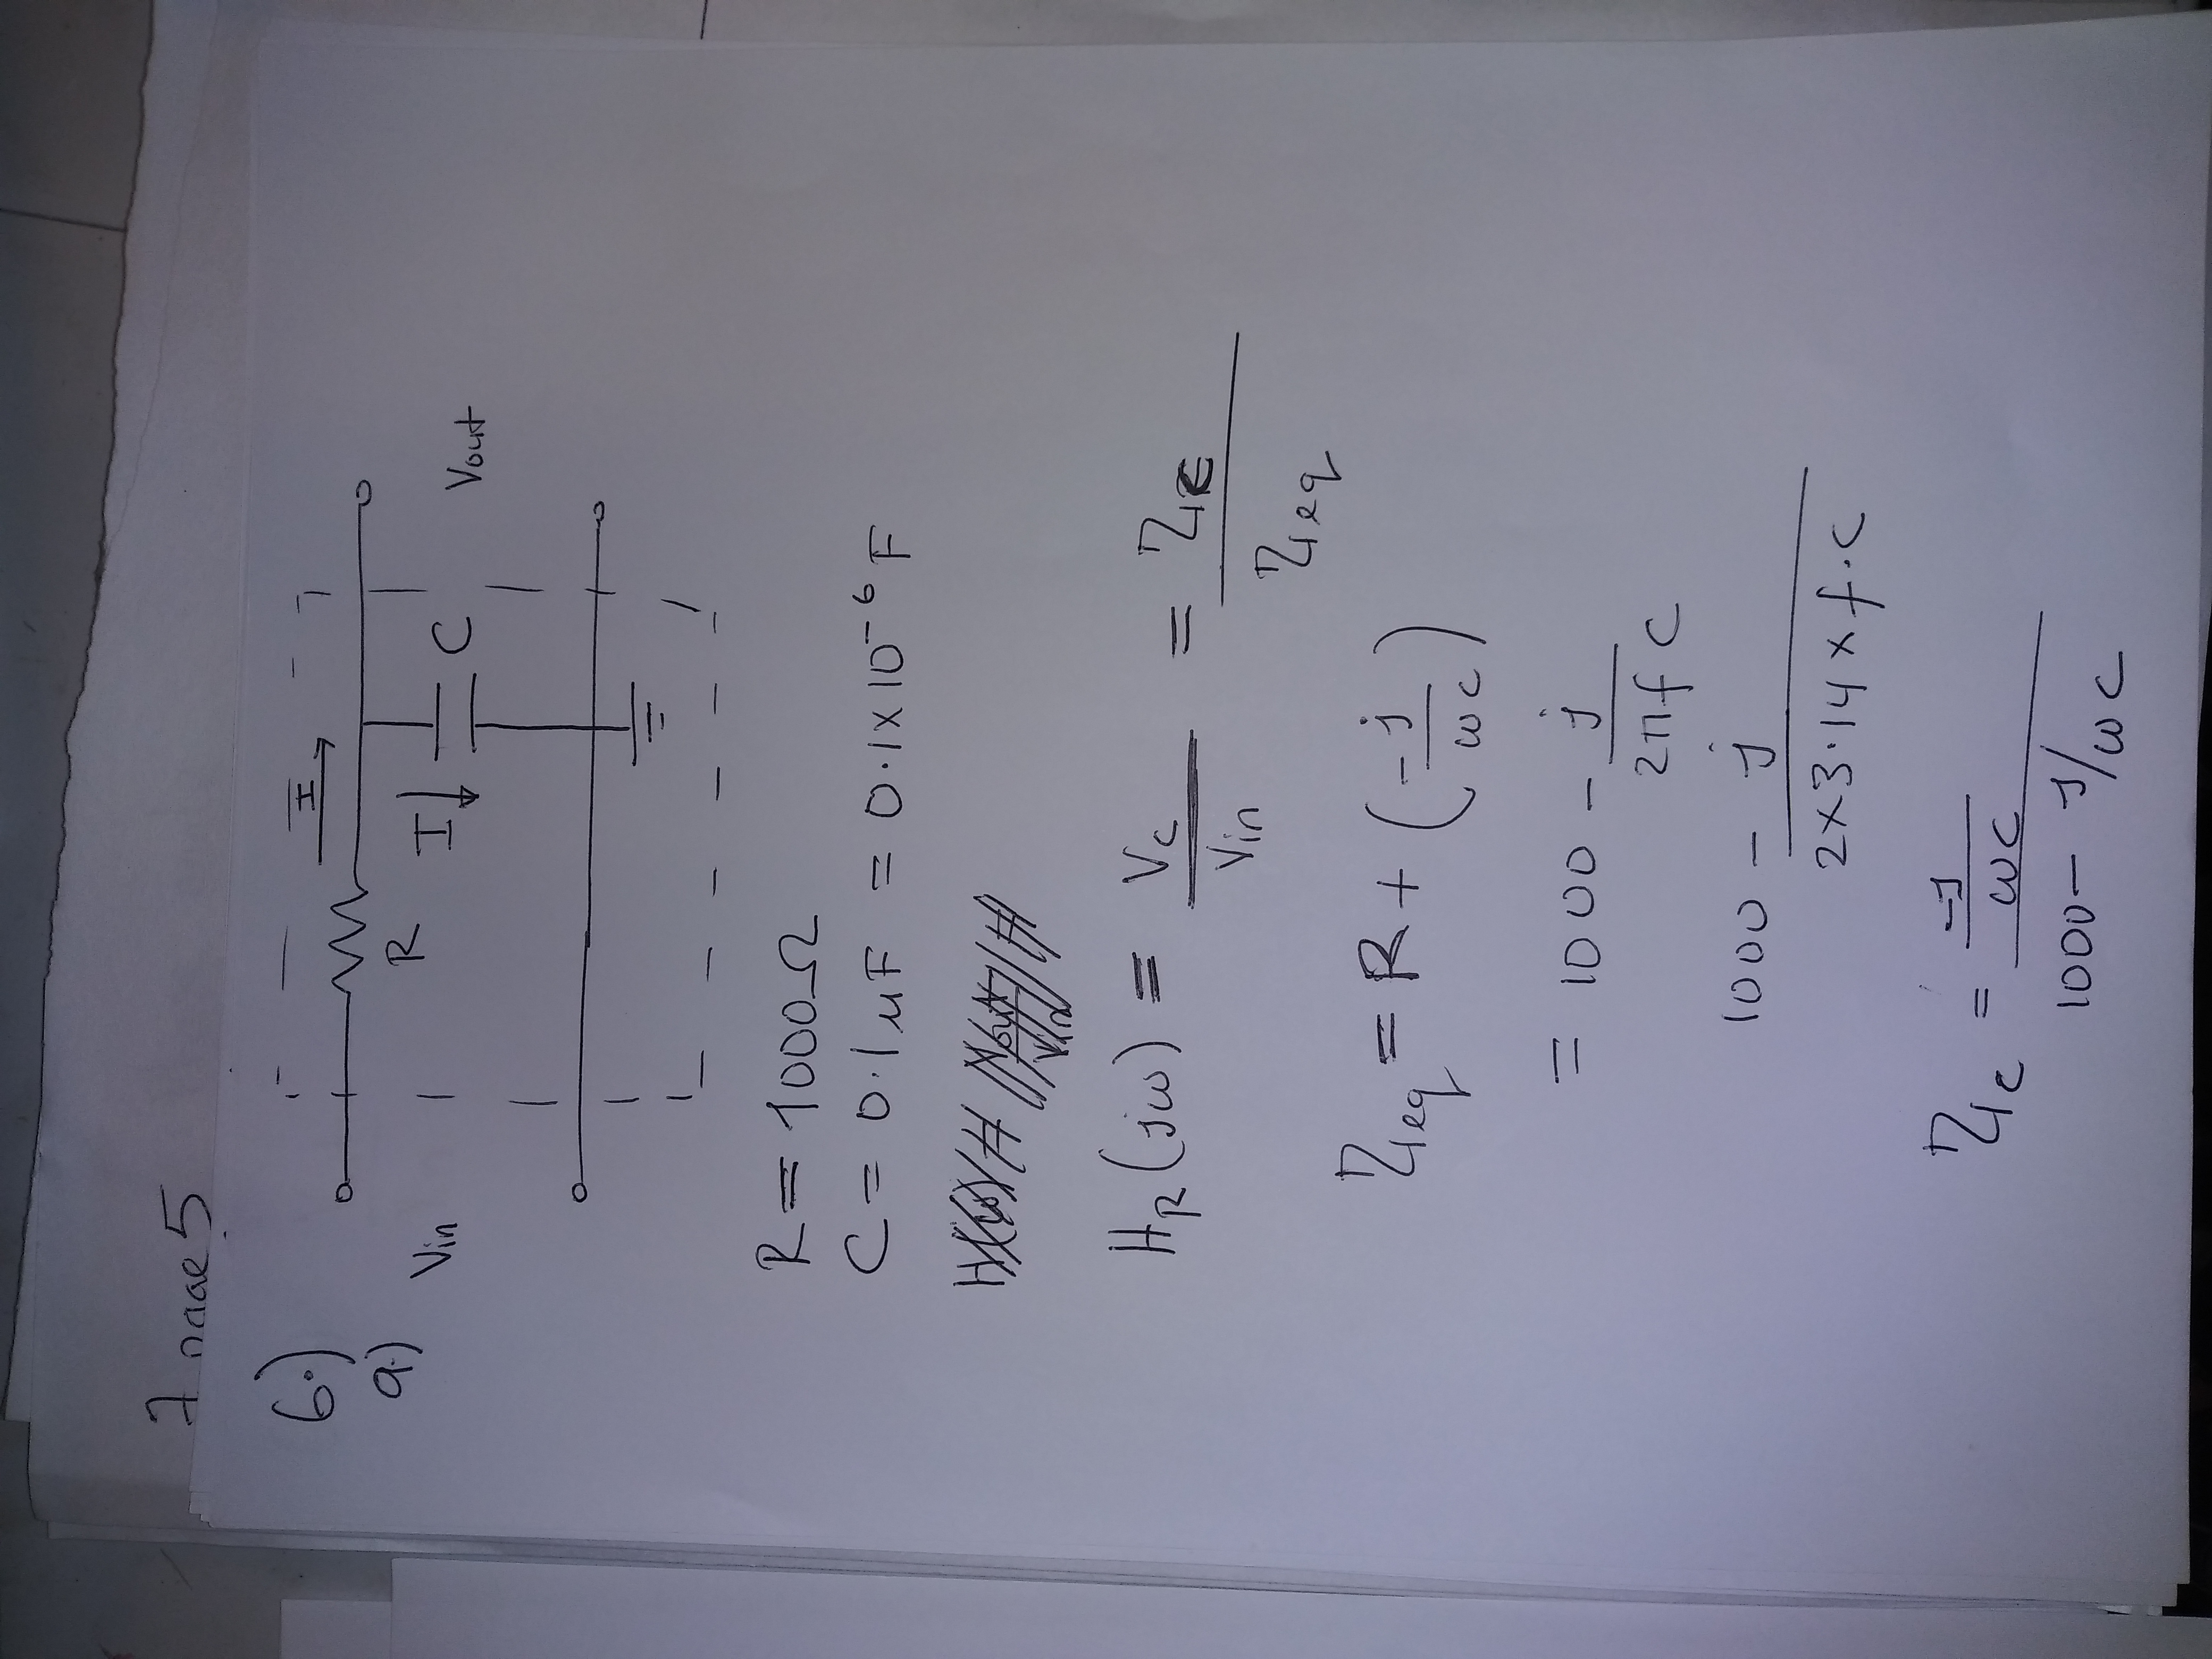 7 page 5
6.)
a.)
I
R
Vin
I
C
Vout
R = 1000Ω
C = 0.1μF = 0.1x10⁻⁶ F
H(ω) = Vout/Vin =
H_R(jω) = Vc/Vin = Zc/Zeq
Zeq = R + (-j/ωc)
= 1000 - j/2πfC
1000 - j/2x3.14xf.c
Zc = -j/ωC/1000 - j/ωC